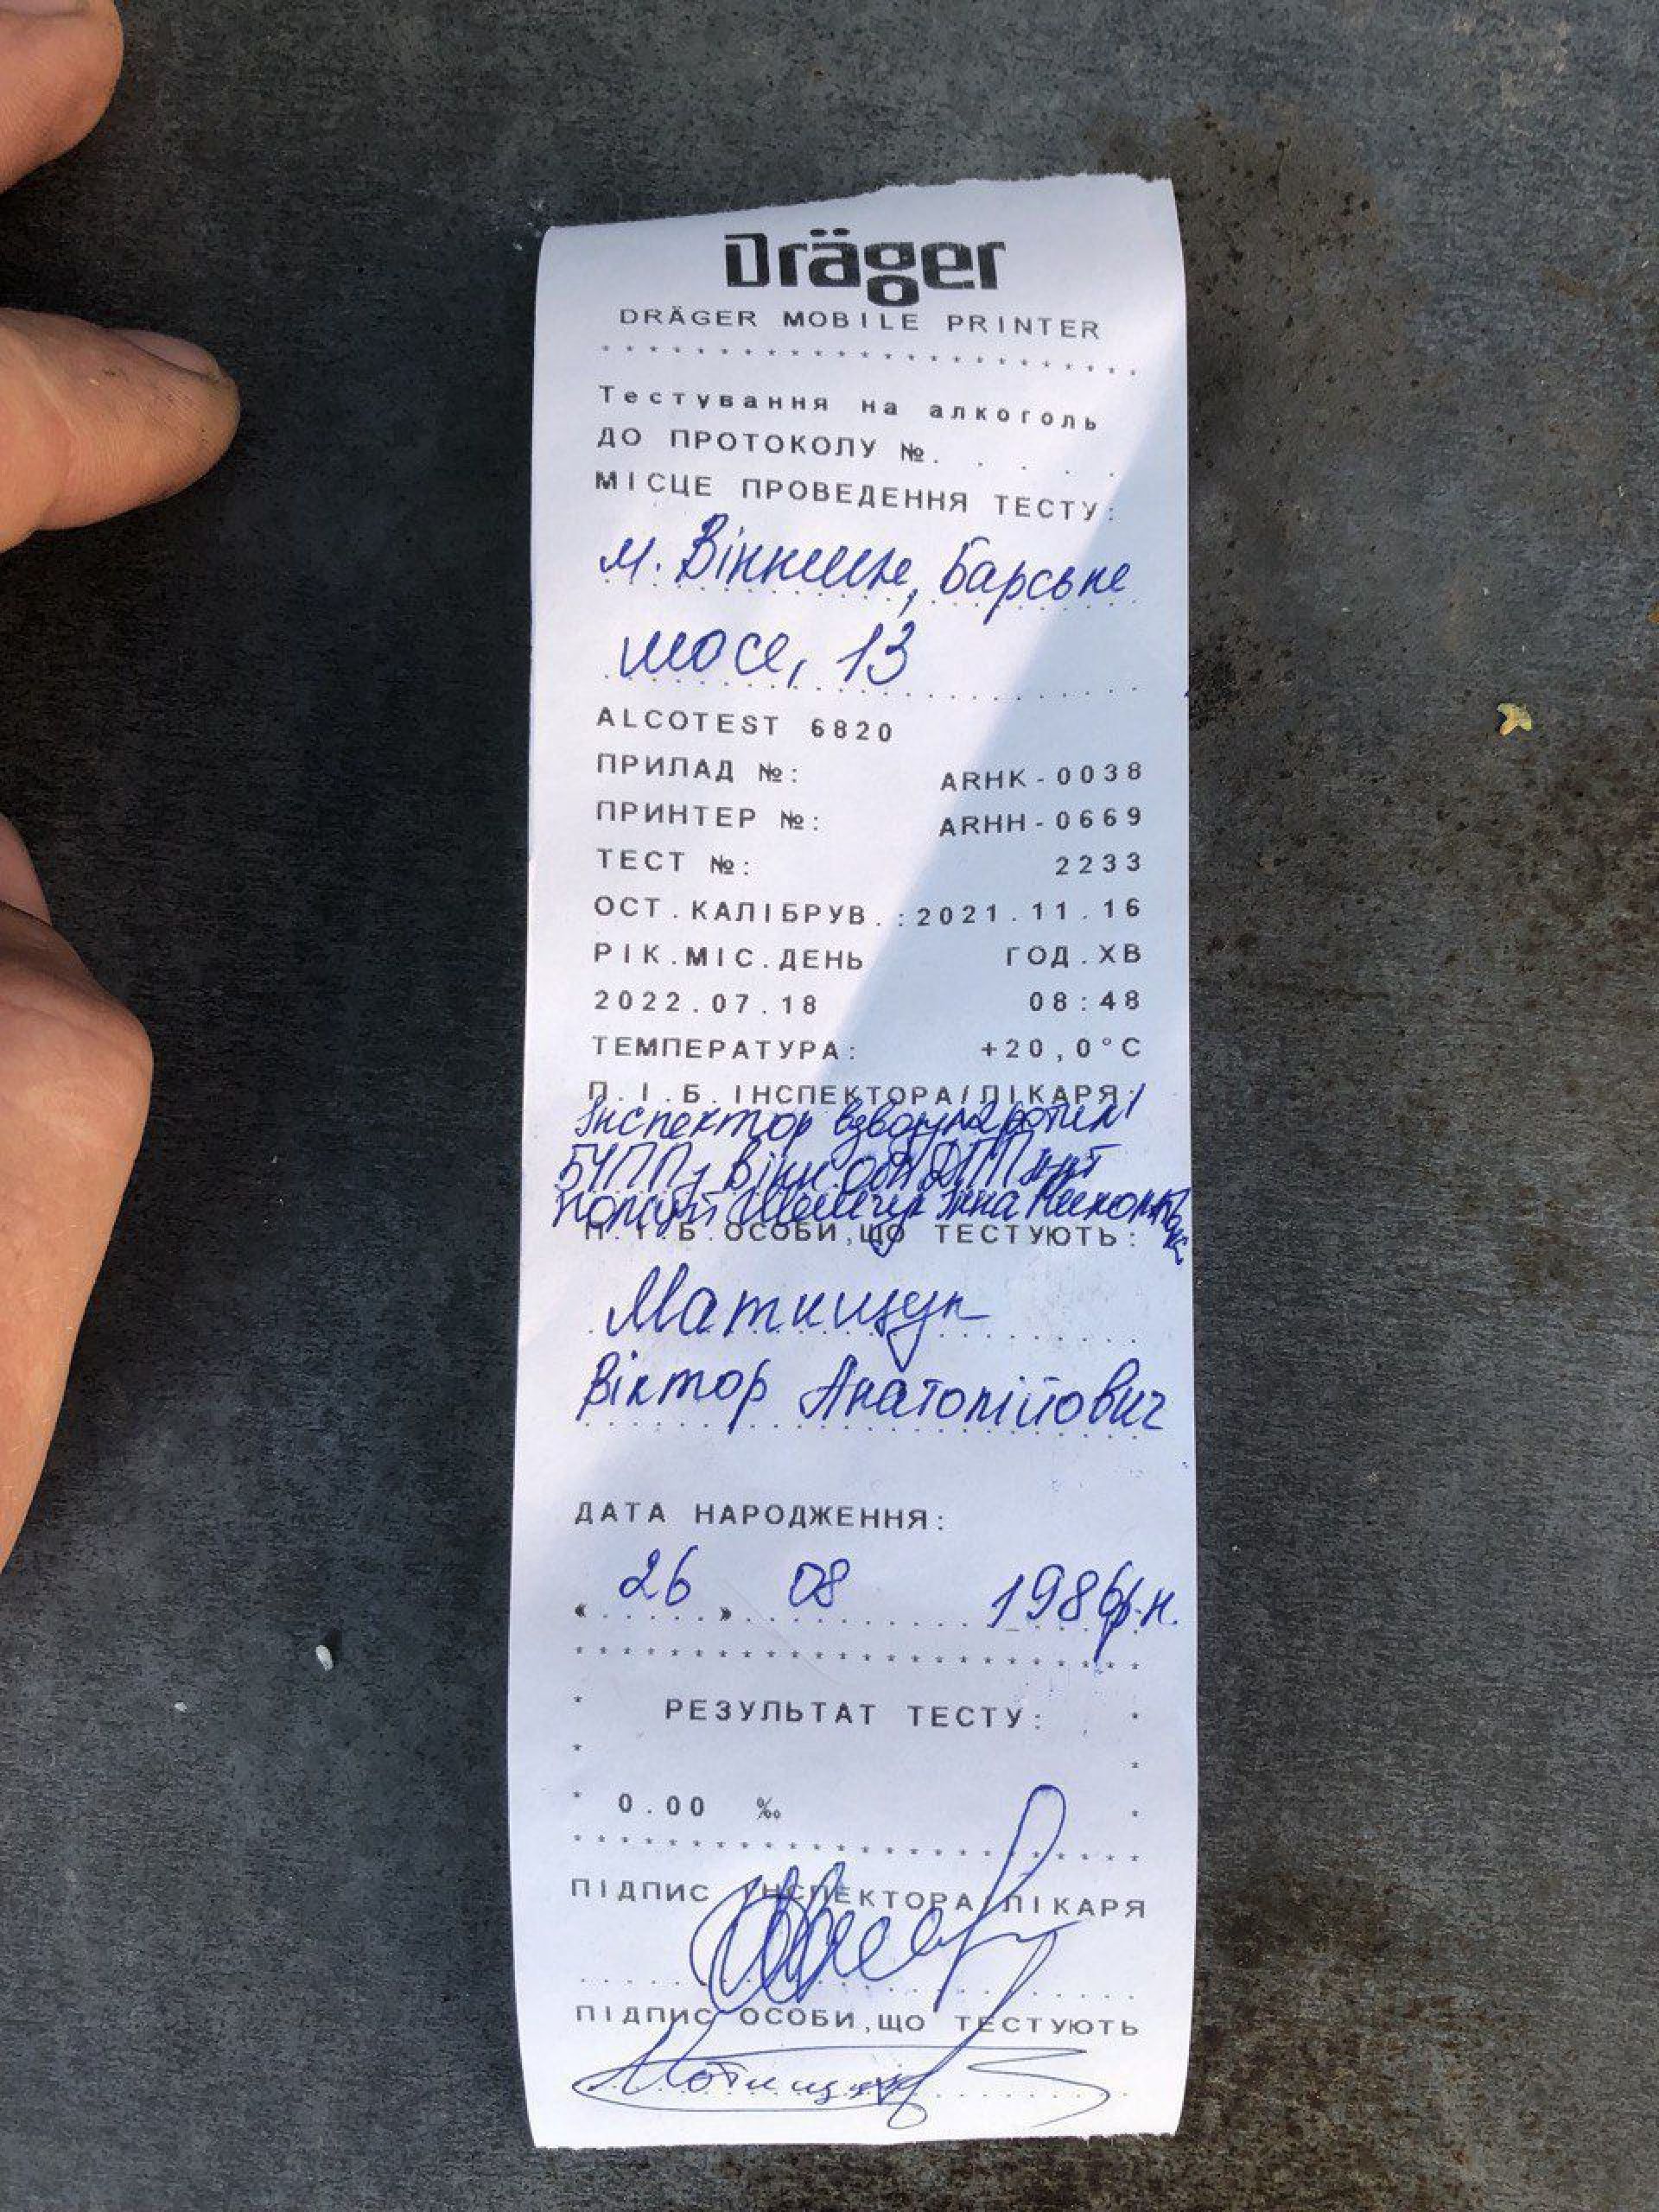 Dräger
DRÄGER MOBILE PRINTER
************************
Тестування на алкоголь
ДО ПРОТОКОЛУ №. . . . .
МІСЦЕ ПРОВЕДЕННЯ ТЕСТУ:
м. Вінниця, Барське
шосе, 13
ALCOTEST 6820
ПРИЛАД №: ARHK-0038
ПРИНТЕР №: ARHH-0669
ТЕСТ №: 2233
ОСТ.КАЛІБРУВ.:2021.11.16
РІК.МІС.ДЕНЬ ГОД.ХВ
2022.07.18 08:48
ТЕМПЕРАТУРА: +20,0°C
П.І.Б.ІНСПЕКТОРА/ЛІКАРЯ:
Інспектор взводу 2 роти 1
БУПП у Він. обл ДПП
Інна
П.І.Б.ОСОБИ,ЩО ТЕСТУЮТЬ:
Матищук
Віктор Анатолійович
ДАТА НАРОДЖЕННЯ:
«26» 08 1986р.н.
************************
* РЕЗУЛЬТАТ ТЕСТУ: *
* *
* 0.00 ‰ *
************************
ПІДПИС ІНСПЕКТОРА/ЛІКАРЯ
ПІДПИС ОСОБИ,ЩО ТЕСТУЮТЬ